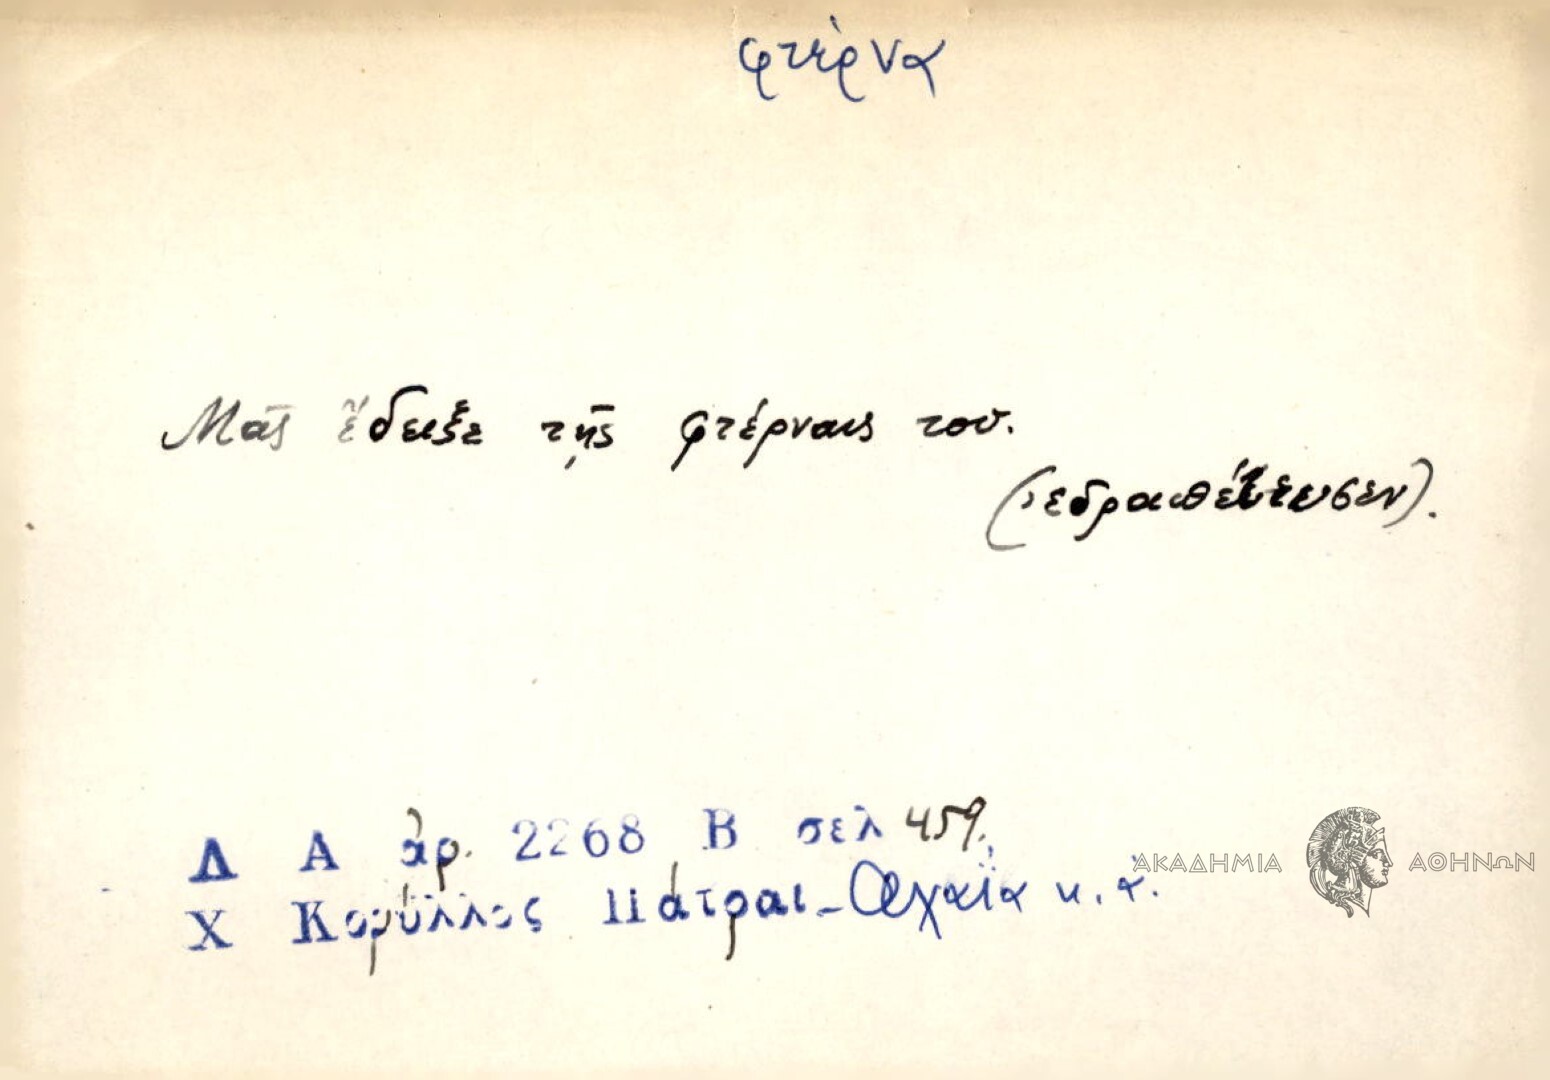 φτέρνα
Μᾶς ἔδειξε τῇς φτέρναις του.
(ἐδραπέτευσεν).
Δ Α ἀρ. 2268 Β σελ 459,
Χ Κορύλλος Πάτραι - Ἀχαΐα κ. ἀ.
ΑΚΑΔΗΜΙΑ ΑΘΗΝΩΝ